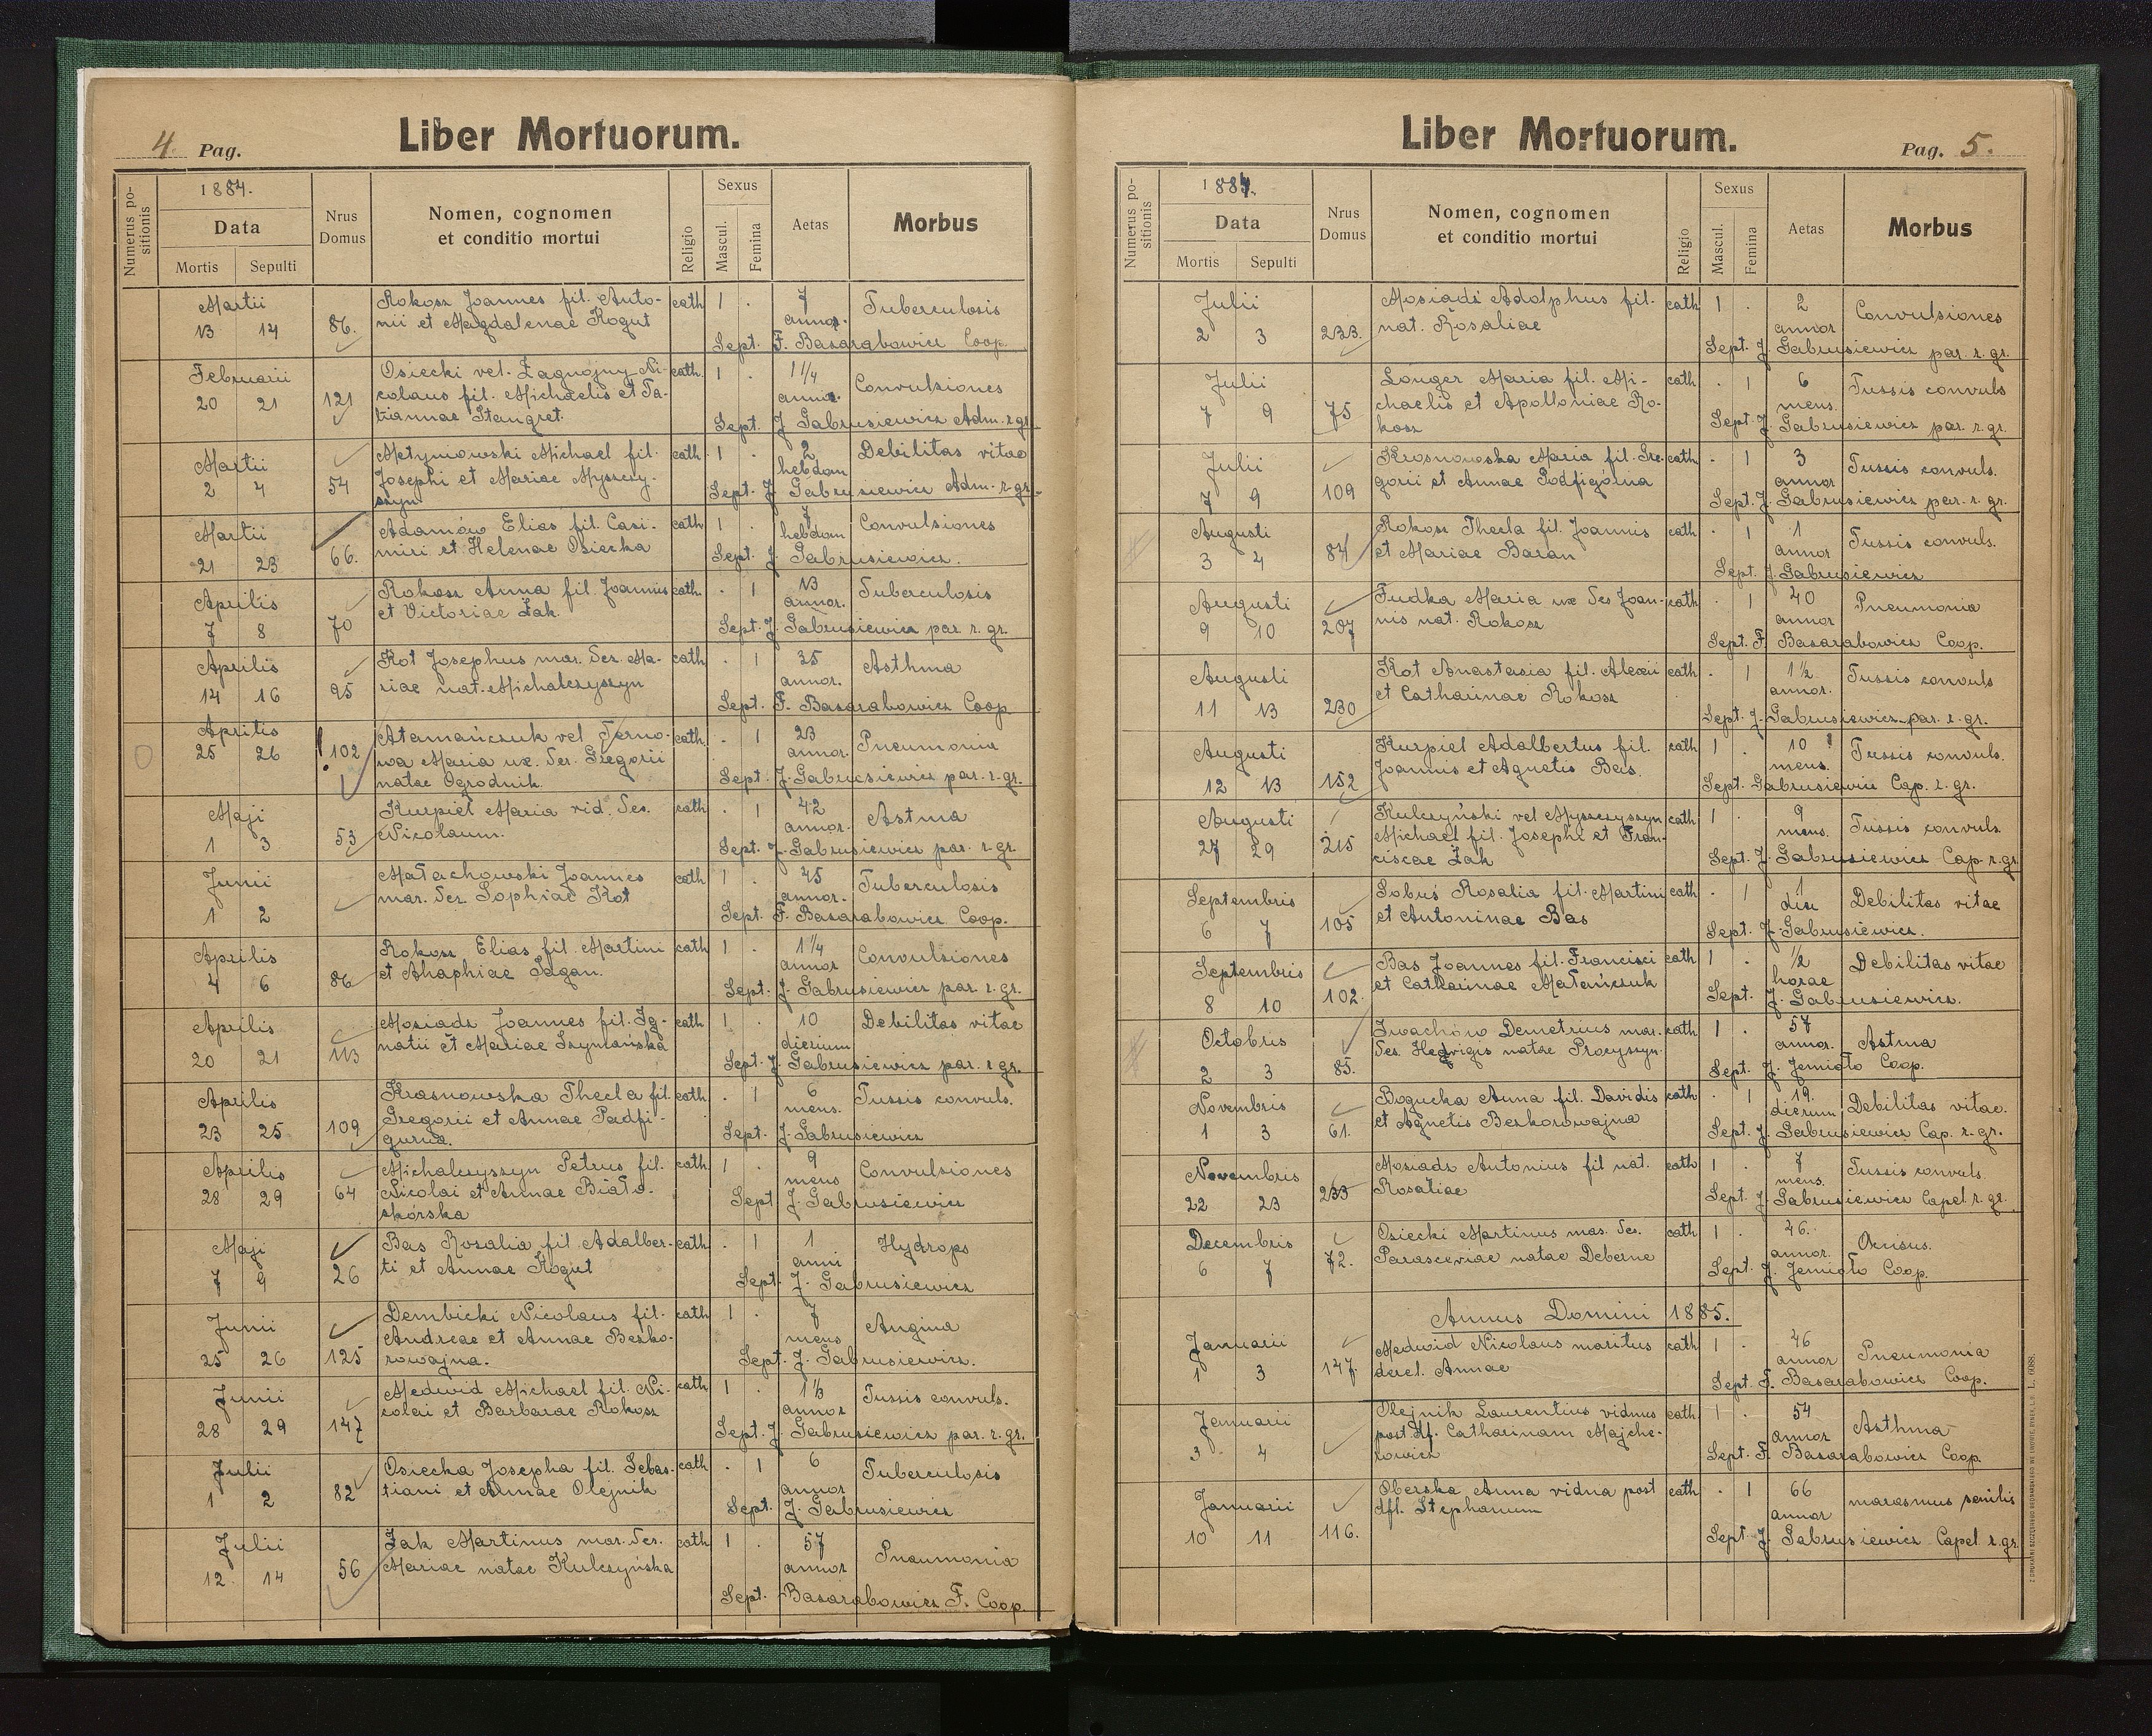 4. Pag.
Liber Mortuorum.
Numerus po-
sitionis
1884.
Data
Mortis
Sepulti
Nrus
Domus
Nomen, cognomen
et conditio mortui
Religio
Sexus
Mascul.
Femina
Aetas
Morbus
Martii
13 14 86.
Rokosz Joannes fil. Anto-
nii et Magdalenae Rogut
cath 1 . 7 annor. Tuberculosis
Sept. F. Basarabowicz Coop.
Februarii
20 21 121
Osiecki vel. Zagnojny Ni-
colaus fil. Michaelis et Ta-
tiannae Stengret.
cath. 1 . 1 1/4 annor. Convulsiones
Sept. J Gabrusiewicz Adm. r. gr.
Martii
2 4 54
Metymowski Michael fil.
Josephi et Mariae Myszczy-
szyn
cath 1 . 2 hebdom Debilitas vitae
Sept. J Gabrusiewicz Adm. r. gr.
Martii
21 23 66.
Adamów Elias fil. Casi-
miri et Helenae Osiecka
cath 1 . 7 hebdom Convulsiones
Sept. J. Gabrusiewicz.
Aprilis
7 8 70
Rokosz Anna fil. Joannis
et Victoriae Żak.
cath. . 1 13 annor. Tuberculosis
Sept. J. Gabrusiewicz par r. gr.
Aprilis
14 16 95
Kot Josephus mar. der. Ma-
riae nat. Michalczyszyn
cath . 1 35 annor. Asthma
Sept. F. Basarabowicz Coop
Aprilis
25 26 102
Atamańczuk vel Terno-
wa Maria ux. der. Gregorii
natae Ogrodnik.
cath. . 1 23 annor. Pneumonia
Sept. J. Gabrucsiewicz par. r. gr.
Maji
1 3 53
Kurpiel Maria vid. der.
Nicolaum.
cath . 1 42 annor. Astma
Sept. J. Gabrusiewicz par. r. gr.
Junii
1 2
Małachowski Joannes
mar. der. Sophiae Kot
cath 1 . 45 annor. Tuberculosis
Sept. F. Basarabowicz Coop.
Aprilis
4 6 86
Rokosz Elias fil. Martini
et Ahaphiae Sagan.
cath 1 . 1 1/4 annor Convulsiones
Sept. J. Gabrusiewicz par. r. gr.
Aprilis
20 21 113
Mosiadz Joannes fil. Ig-
natii et Mariae Szymańska
cath 1 . 10 dierium Debilitas vitae
Sept. J. Gabrusiewicz par. r gr.
Aprilis
23 25 109
Krasnowska Thecla fil.
Gregorii et Annae Padfi-
gurna.
cath . 1 6 mens. Tussis convuls.
Sept. J. Gabrusiewicz
Aprilis
28 29 64
Michalczyszyn Petrus fil.
Nicolai et Annae Biało-
skórska
cath 1 . 9 mens Convulsiones
Sept J. Gabrusiewicz
Maji
7 9 26
Bas Rosalia fil. Adalber-
ti et Annae Rogut
cath . 1 1 anni Hydrops
Sept. J. Gabrusiewicz
Junii
25 26 125
Dembicki Nicolaus fil.
Andreae et Annae Bezko-
rowajna.
cath 1 . 7 mens Angina
Sept. J. Gabrusiewicz.
Junii
28 29 147
Medwid Michael fil. Ni-
colai et Barbarae Rokosz
cath 1 1 1/3 annor Tussis convuls.
Sept. J. Gabrusiewicz par. r. gr.
Julii
1 2 82
Osiecka Josepha fil. Sebas-
tiani et Annae Olejnik
cath . 1 6 annor Tuberculosis
Sept. J. Gabrusiewicz
Julii
12 14 56
Żak Martinus mar. der.
Mariae natae Kulczyńska
cath 1 . 57 annor Pneumonia
Sept. Basarabowicz F. Coop.
Liber Mortuorum.
Pag. 5.
Numerus po-
sitionis
1884.
Data
Mortis
Sepulti
Nrus
Domus
Nomen, cognomen
et conditio mortui
Religio
Sexus
Mascul.
Femina
Aetas
Morbus
Julii
2 3 233.
Mosiadz Adolphus fil.
nat. Rosaliae
cath 1 . 2 annor Convulsiones
Sept. J. Gabrusiewicz par. r. gr.
Julii
7 9 75
Louger Maria fil. Mi-
chaelis et Apolloniae Ro-
kosz
cath . 1 6 mens. Tussis convuls
Sept. J. Gabrusiewicz par. r. gr.
Julii
7 9 109
Krasnowska Maria fil. Gre-
gorii et Annae Podfigórna
cath . 1 3 annor Tussis convuls.
Sept. J. Gabrusiewicz par. r. gr.
Augusti
3 4 87
Rokosz Thecla fil. Joannis
et Mariae Baran
cath . 1 1 annor Tussis convuls.
Sept. J. Gabrusiewicz
Augusti
9 10 207
Fudka Maria ux der Joan-
nis nat. Rokosz
cath . 1 40 annor Pneumonia
Sept. F. Basarabowicz Coop.
Augusti
11 13 230
Kot Anastasia fil. Alexii
et Catharinae Rokosz
cath . 1 1 1/2 annor. Tussis convuls
Sept. J. Gabrusiewicz par. r. gr.
Augusti
12 13 152
Kurpiel Adalbertus fil.
Joannis et Agnetis Bas.
cath 1 . 10 mens. Tussis convuls.
Sept. Gabrusiewicz Cap. r. gr.
Augusti
27 29 215
Kulczyński vel Myszczyszyn
Michael fil. Josephi et Fran-
ciscae Żak
cath 1 . 9 mens. Tussis convuls.
Sept. J. Gabrusiewicz Cap. r. gr.
Septembris
6 7 105
Sobuś Rosalia fil. Martini
et Antoninae Bas
cath . 1 1 diei Debilitas vitae
Sept. J. Gabrusiewicz.
Septembris
8 10 102.
Bas Joannes fil. Francisci
et Catharinae Matańczuk
cath 1 . 1/2 horae Debilitas vitae
Sept. J. Gabrusiewicz.
Octobris
2 3 85.
Iwachów Demetrius mar.
der. Hedvigis natae Procyszyn.
cath 1 . 57 annor. Astma
Sept. J. Jemioło Coop.
Novembris
1 3 61.
Bogucka Anna fil. Davidis
et Agnetis Bezkorowajna
cath . 1 19. dierum Debilitas vitae.
Sept. J. Gabrusiewicz Cap. r. gr.
Novembris
22 23 233
Mosiadz Antonius fil nat.
Rosaliae
cath 1 . 7 mens. Tussis convuls.
Sept. J. Gabrusiewicz Capel r. gr.
Decembris
6 7 72.
Osiecki Martinus mar. der.
Parasceviae natae Deberne
cath 1 . 46. annor. Ocisus.
Sept. J. Jemioło Coop.
Annus Domini 1885.
Januarii
1 3 147.
Medwid Nicolaus maritus
derel. Annae
cath 1 . 46 annor Pneumonia
Sept. F. Basarabowicz Coop.
Januarii
3 4
Olejnik Laurentius viduus
post df. Catharinam Majche-
rowicz
cath. 1 . 54 annor Asthma
Sept. F. Basarabowicz Coop.
Januarii
10 11 116.
Oberska Anna vidua post
dfl. Stephanum
cath . 1 66 annor marasmus senilis
Sept. J. Gabrusiewicz Capel r. gr.